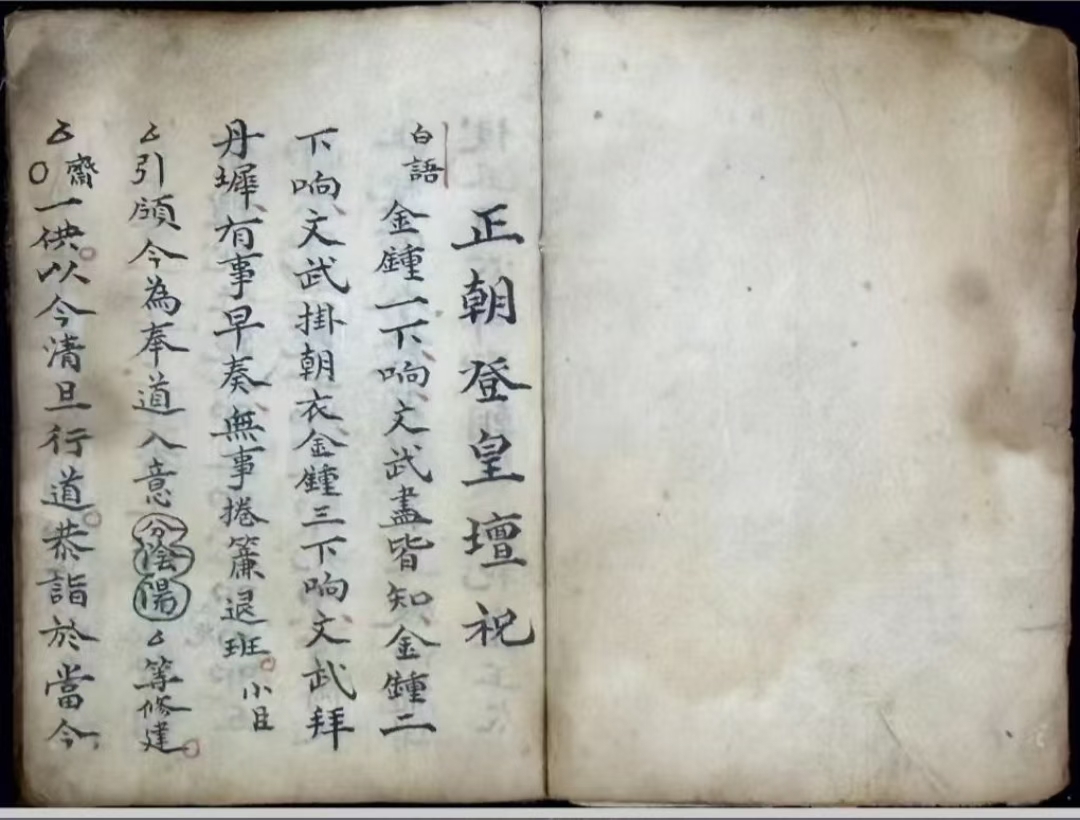 正朝登皇壇祝
白語
金鍾一下响文武盡皆知金鍾二
下响文武掛朝衣金鍾三下响文武拜
丹墀有事早奏無事捲簾退班小臣
厶引頒今為奉道入意分陰陽厶等修建
厶齋〇一供以今清旦行道恭詣於當今